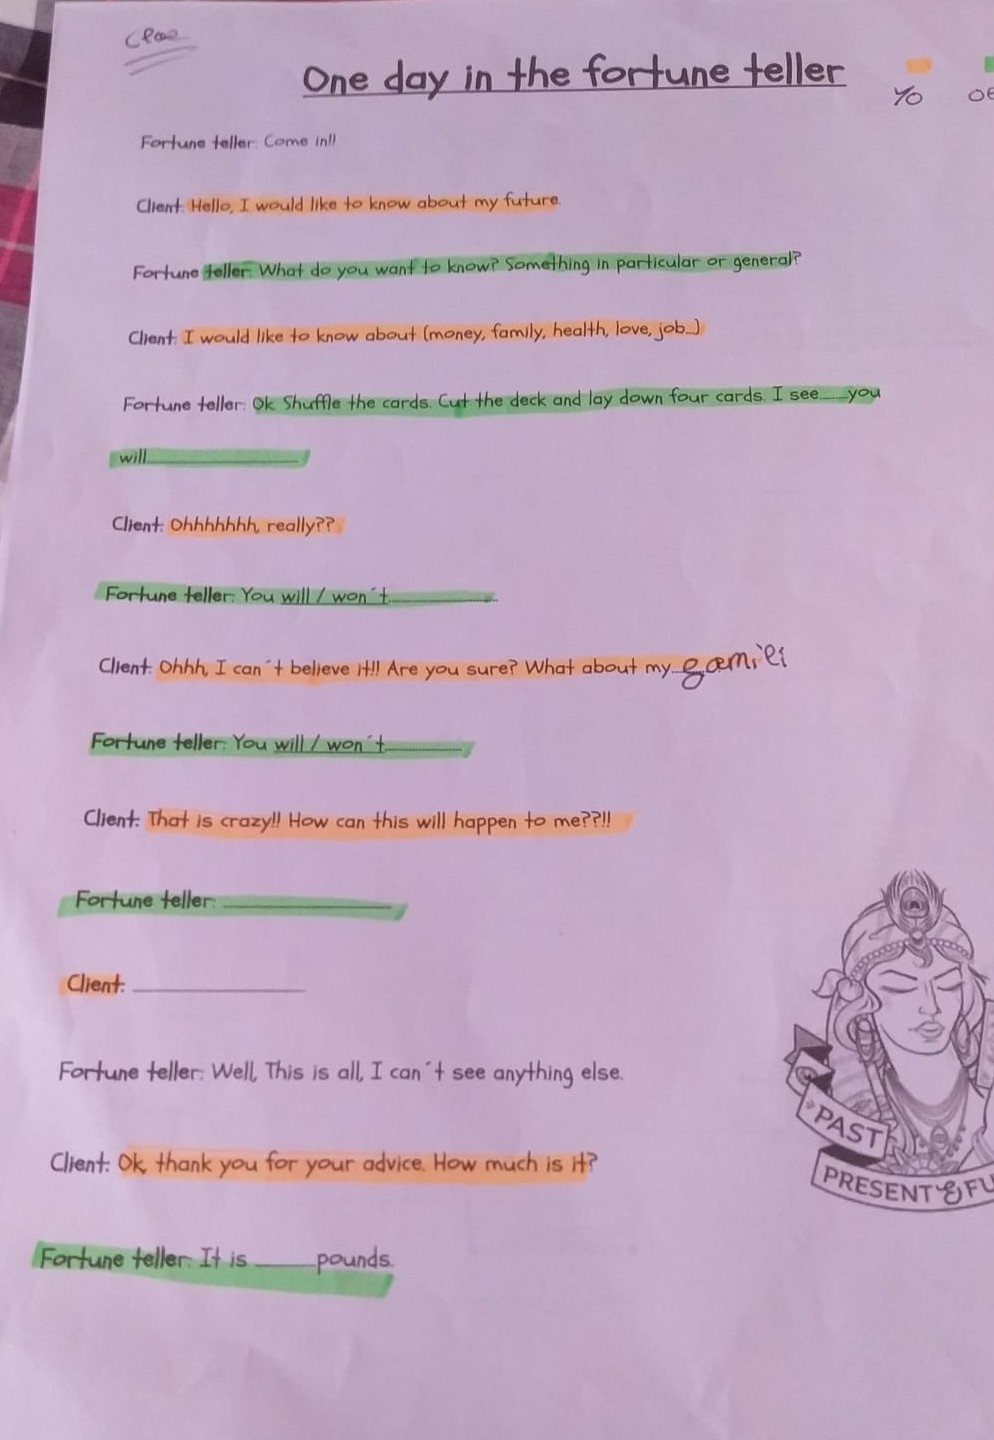 One day in the fortune teller
YO
Fortune teller: Come in!!
Client: Hello, I would like to know about my future.
Fortune teller: What do you want to know? Something in particular or general?
Client: I would like to know about (money, family, health, love, job...)
Fortune teller: Ok. Shuffle the cards. Cut the deck and lay down four cards. I see____you
will____________
Client: Ohhhhhhh, really??
Fortune teller: You will / won´t____________.
Client: Ohhh, I can´t believe it!! Are you sure? What about my
Fortune teller: You will / won´t________
Client: That is crazy!! How can this will happen to me??!!
Fortune teller: ______________
Client: ______________
Fortune teller: Well, This is all, I can´t see anything else.
Client: Ok, thank you for your advice. How much is it?
Fortune teller: It is _____pounds.
PAST
PRESENT & FU